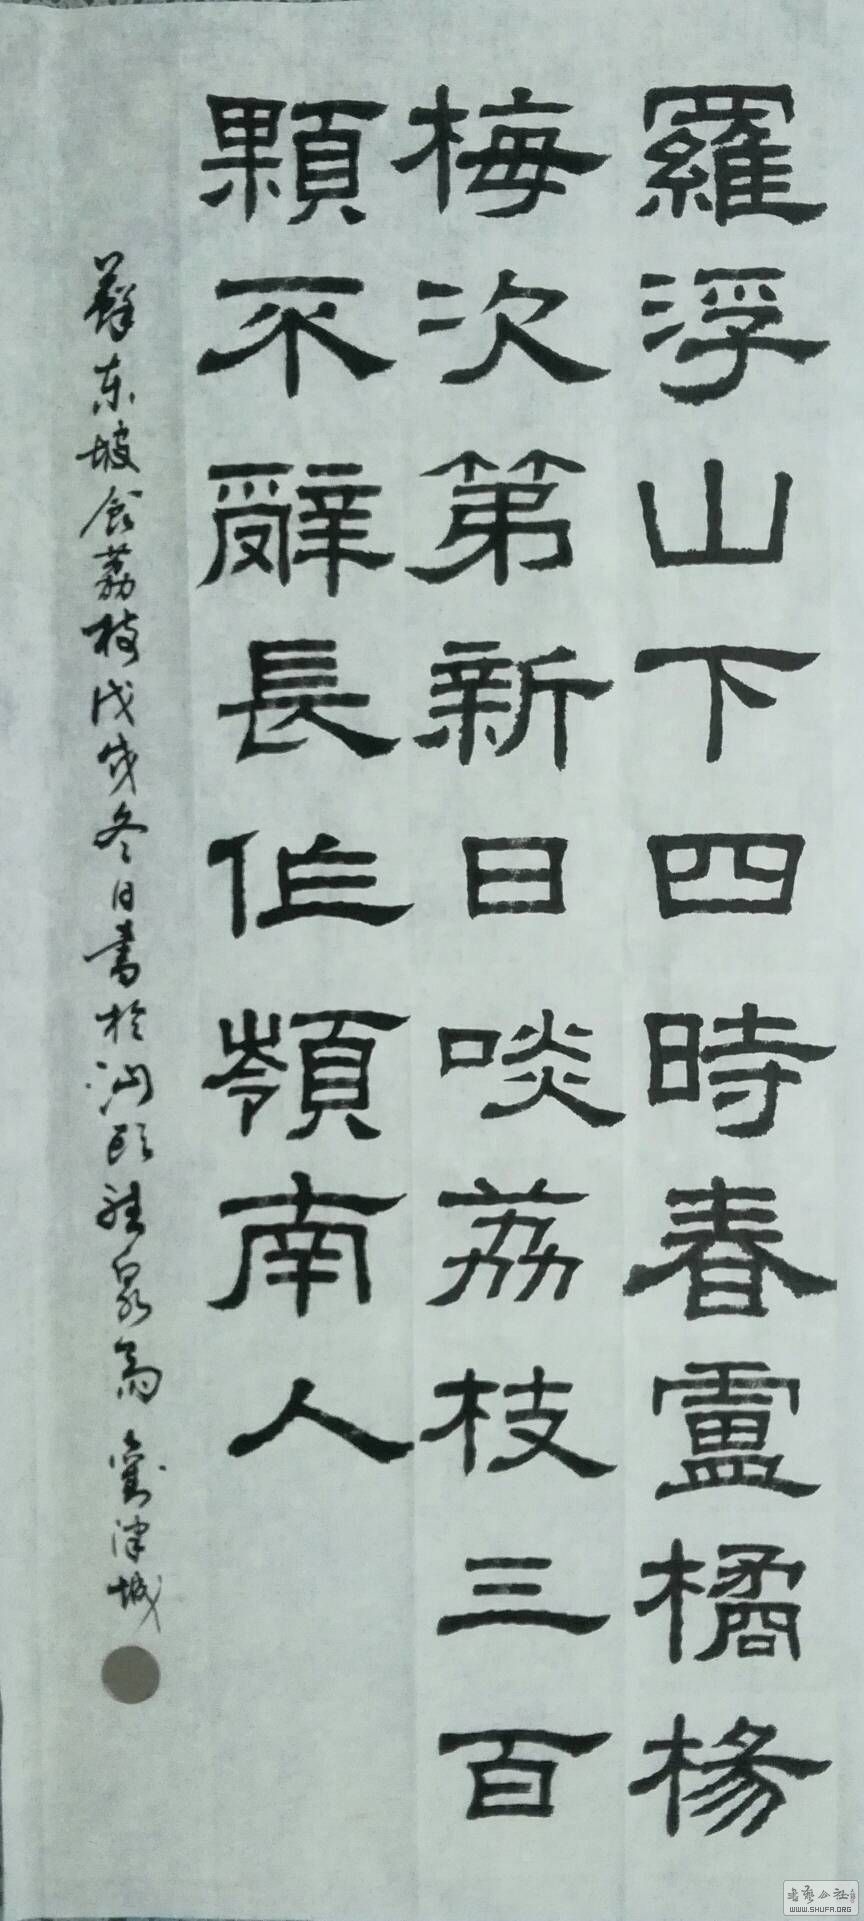 羅浮山下四時春盧橘楊
梅次第新日啖荔枝三百
顆不辭長作嶺南人
蘇東坡食荔枝戊戌冬日書於汕頭 泉 劉津城
書藝公社
WWW.SHUFA.ORG